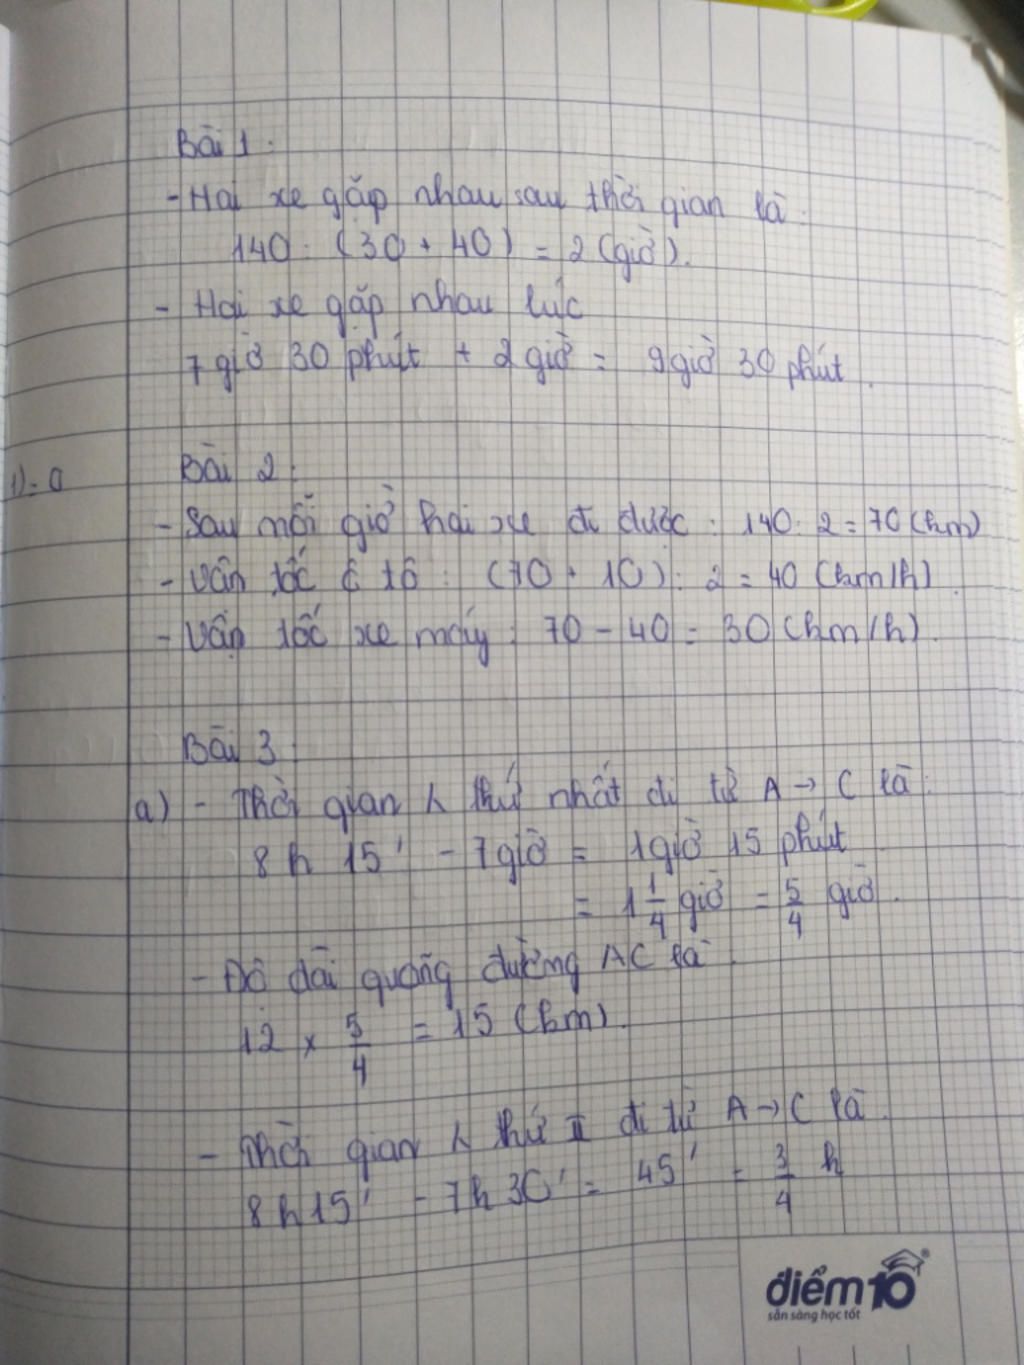 Bài 1:
- Hai xe gặp nhau sau thời gian là:
140 : (30 + 40) = 2 (giờ).
- Hai xe gặp nhau lúc
7 giờ 30 phút + 2 giờ = 9 giờ 30 phút.
Bài 2:
- Sau mỗi giờ hai xe đi được : 140 : 2 = 70 (km)
- Vận tốc ô tô : (70 + 10) : 2 = 40 (km/h).
- Vận tốc xe máy : 70 - 40 = 30 (km/h).
Bài 3:
a) - Thời gian λ thứ nhất đi từ A → C là:
8 h 15' - 7 giờ = 1 giờ 15 phút
= 1 1/4 giờ = 5/4 giờ.
- Độ dài quãng đường AC là:
12 x 5/4 = 15 (km).
- Thời gian λ thứ II đi từ A → C là:
8 h 15' - 7 h 30' = 45' = 3/4 h
điểm10
sẵn sàng học tốt